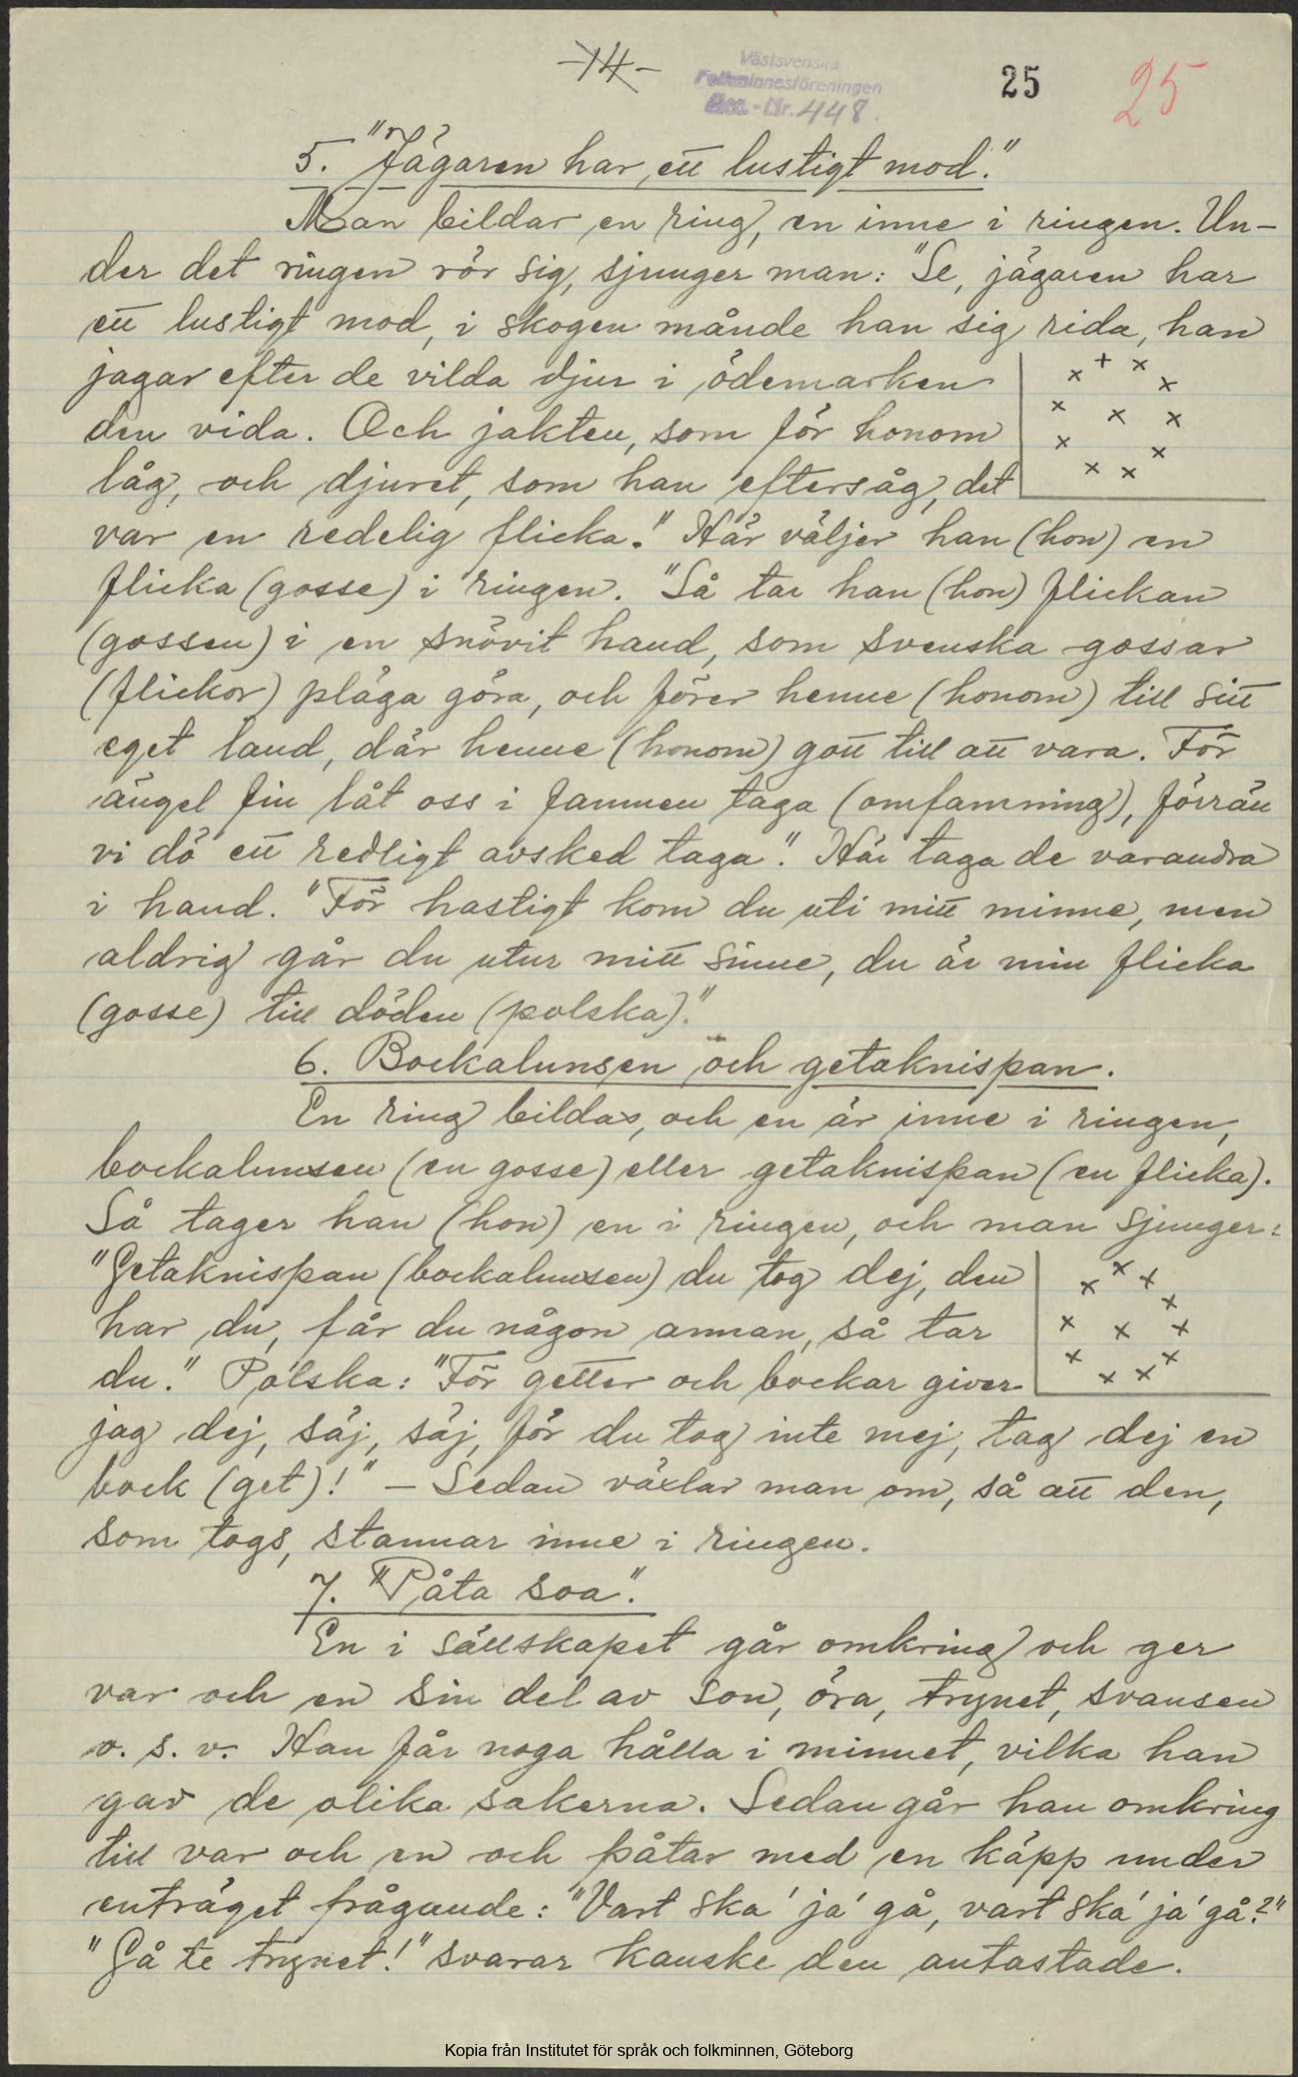 -14-
Västsvenska
Folkminnesföreningen
Acc.-Nr. 448.
25
25
5. "Jägaren har ett lustigt mod."
Man bildar en ring, en inne i ringen. Un-
der det ringen rör sig, sjunger man: "Se, jägaren har
ett lustigt mod, i skogen månde han sig rida, han
jagar efter de vilda djur i ödemarken
den vida. Och jakten, som för honom
låg, och djuret, som han eftersåg, det
var en redelig flicka." Här väljer han (hon) en
flicka (gosse) i ringen. "Så tar han (hon) flickan
(gossen) i en snövit hand, som svenska gossar
(flickor) pläga göra, och förer henne (honom) till sitt
eget land, där henne (honom) gott till att vara. För
ängel fin låt oss i famnen taga (omfamning), förrän
vi dö ett redligt avsked taga". Här taga de varandra
i hand. "För hastigt kom du uti mitt minne, men
aldrig går du utur mitt sinne, du är min flicka
(gosse) till döden (polska)."
6. Bockalunsen och getaknispan.
En ring bildas, och en är inne i ringen,
bockalunsen (en gosse) eller getaknispan (en flicka).
Så tager han (hon) en i ringen, och man sjunger:
"Getaknispan (bockalunsen) du tog dej, den
har du, får du någon annan, så tar
du." Polska: "För getter och bockar giver
jag dej, säj, säj, för du tog inte mej, tag dej en
bock (get)!" – Sedan växlar man om, så att den,
som togs, stannar inne i ringen.
7. "Påta soa".
En i sällskapet går omkring och ger
var och en sin del av son, öra, trynet, svansen
o. s. v. Han får noga hålla i minnet, vilka han
gav de olika sakerna. Sedan går han omkring
till var och en och påtar med en käpp under
enträget frågande: "Vart ska' ja' gå, vart ska' ja' gå?"
"Gå te trynet!" svarar kanske den antastade.
Kopia från Institutet för språk och folkminnen, Göteborg